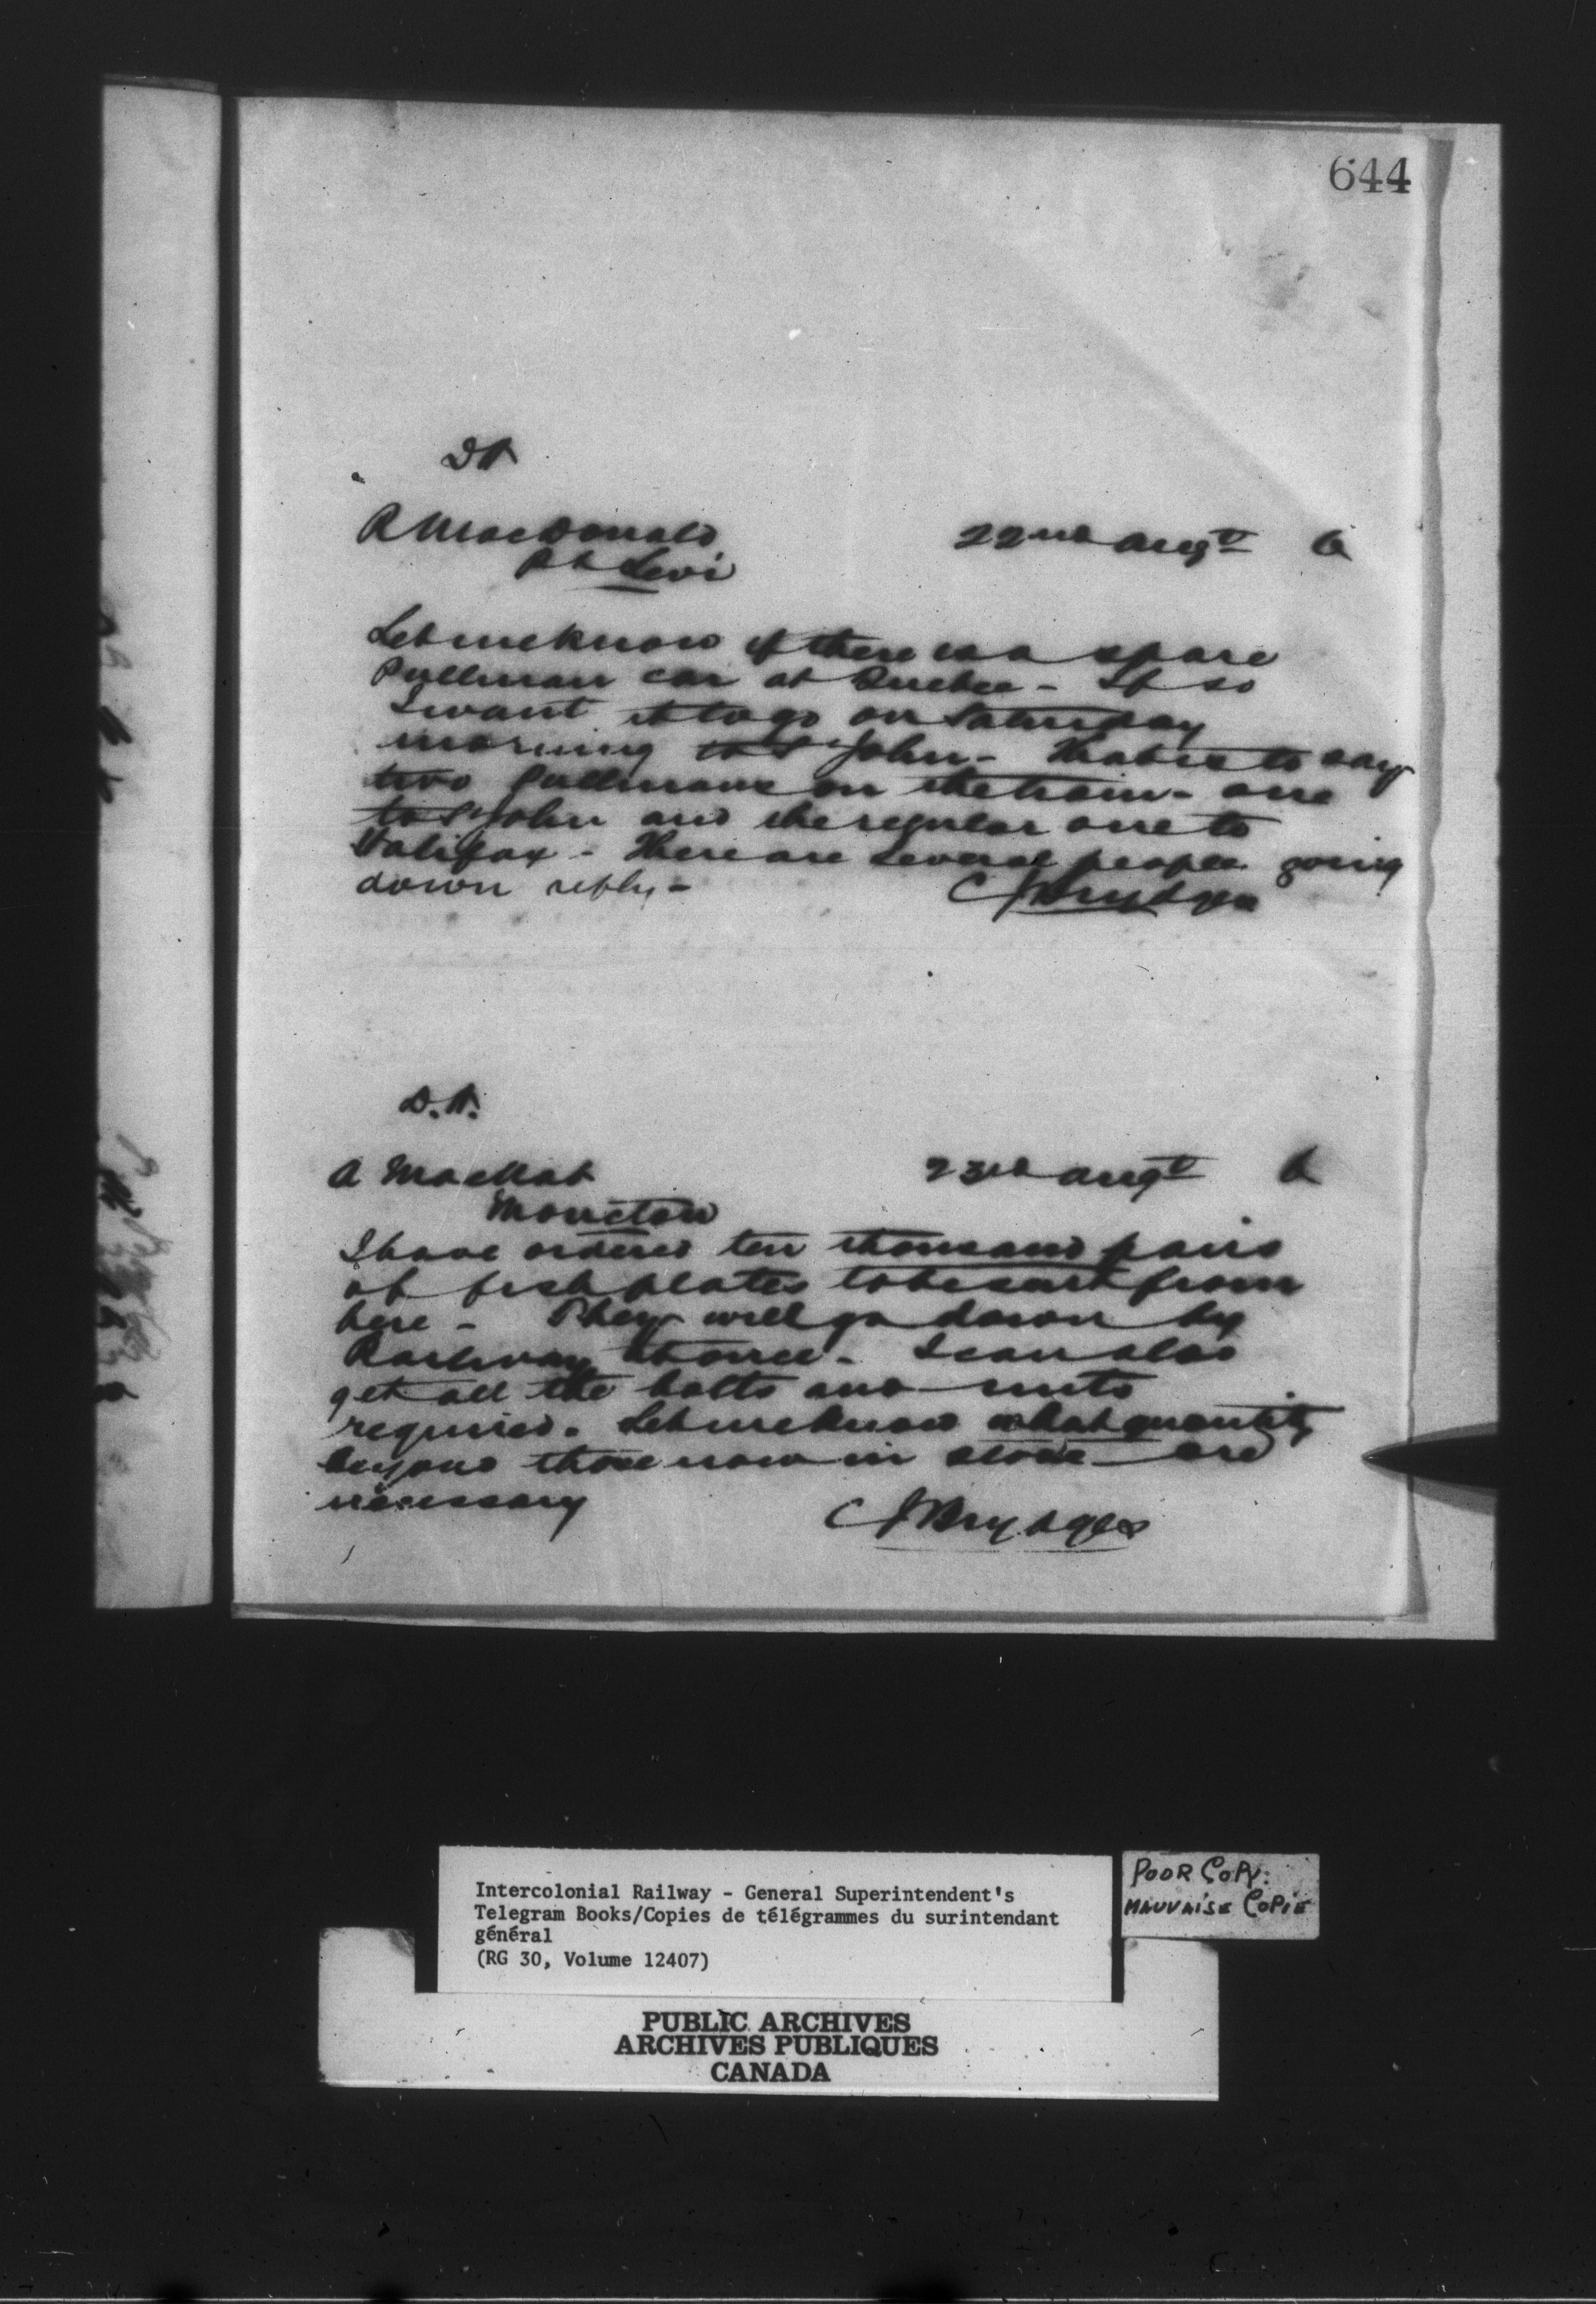 644
DH
R MacDonald
Pt Levi
22nd Augt 6
Let me know if there is a spare
Pullman car at Quebec - If so
I want it to go on Saturday
morning to St John - That is to say
two Pullmans on the train - one
to St John and the regular one to
Halifax - There are several people going
down reply -
CJBrydges
D.H.
A MacNab
Moncton
23rd Augt 6
I have ordered ten thousand pairs
of fishplates to be sent from
here - They will go down by
Railway at once - I can also
get all the bolts and nuts
required. Let me know what quantity
beyond those now in store are
necessary
CJBrydges
Intercolonial Railway - General Superintendent's
Telegram Books/Copies de télégrammes du surintendant
général
(RG 30, Volume 12407)
POOR COPY:
MAUVAISE COPIE
PUBLIC ARCHIVES
ARCHIVES PUBLIQUES
CANADA